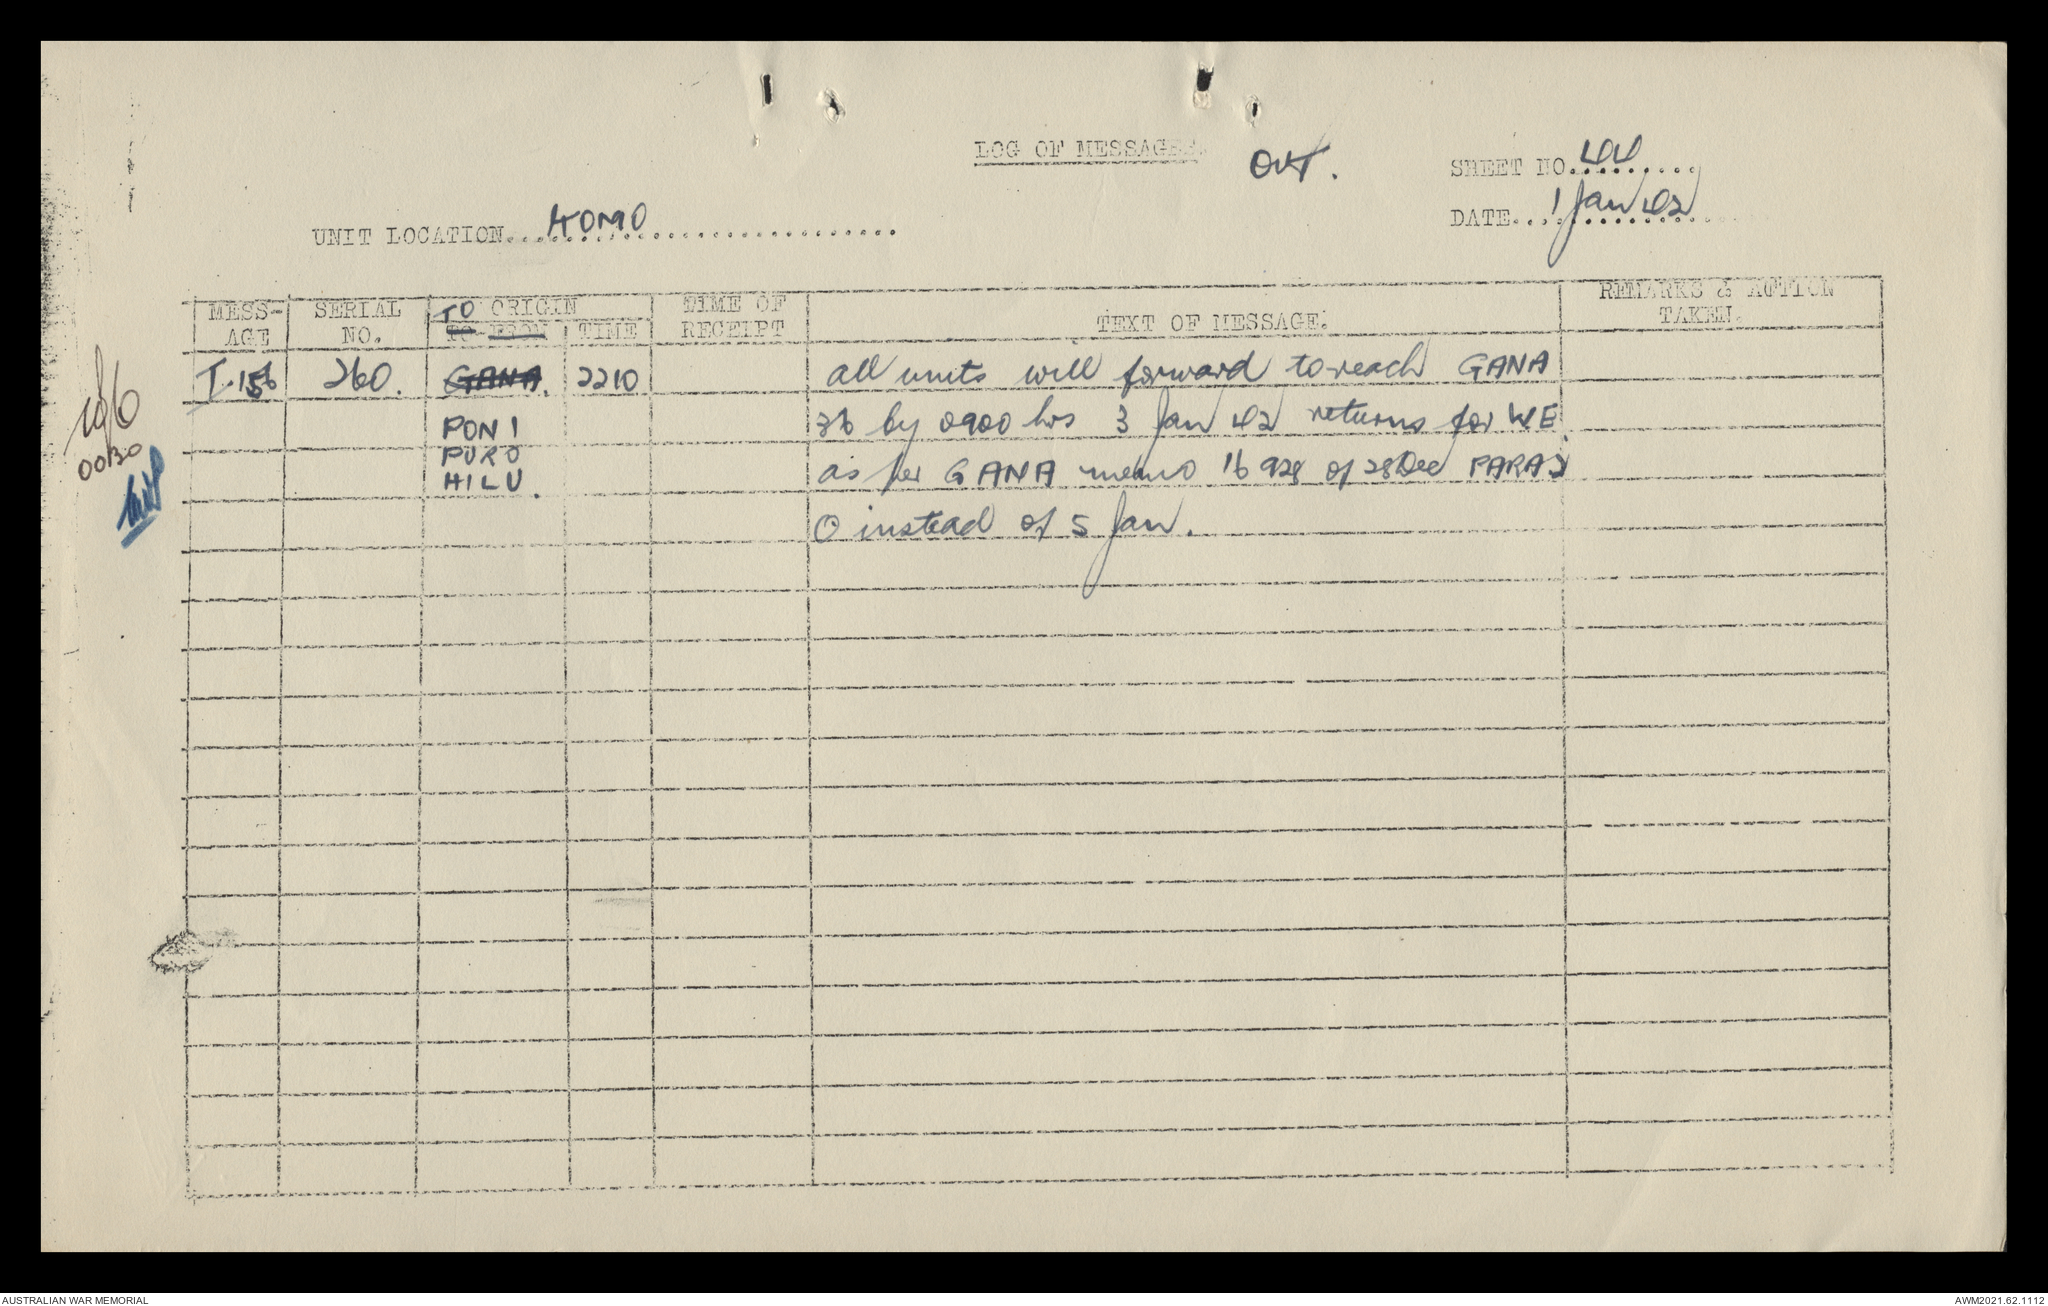 LOG OF MESSAGES. OUT.
SHEET NO. 44
DATE 1 Jan 42
UNIT LOCATION HOMO
MESS-AGE SERIAL NO. TO ORIGIN TO FROM TIME TIME OF RECEIPT TEXT OF MESSAGE. REMARKS & ACTION TAKEN.
T.156 260. GANA. 2210 all units will forward to reach GANA
PONI by 0900 hrs 3 Jan 42 returns for WE
PURO
HILU. as per GANA memo 16928 of 28 Dec PARA 2
O instead of 5 Jan.
0030
AUSTRALIAN WAR MEMORIAL
AWM2021.62.1112